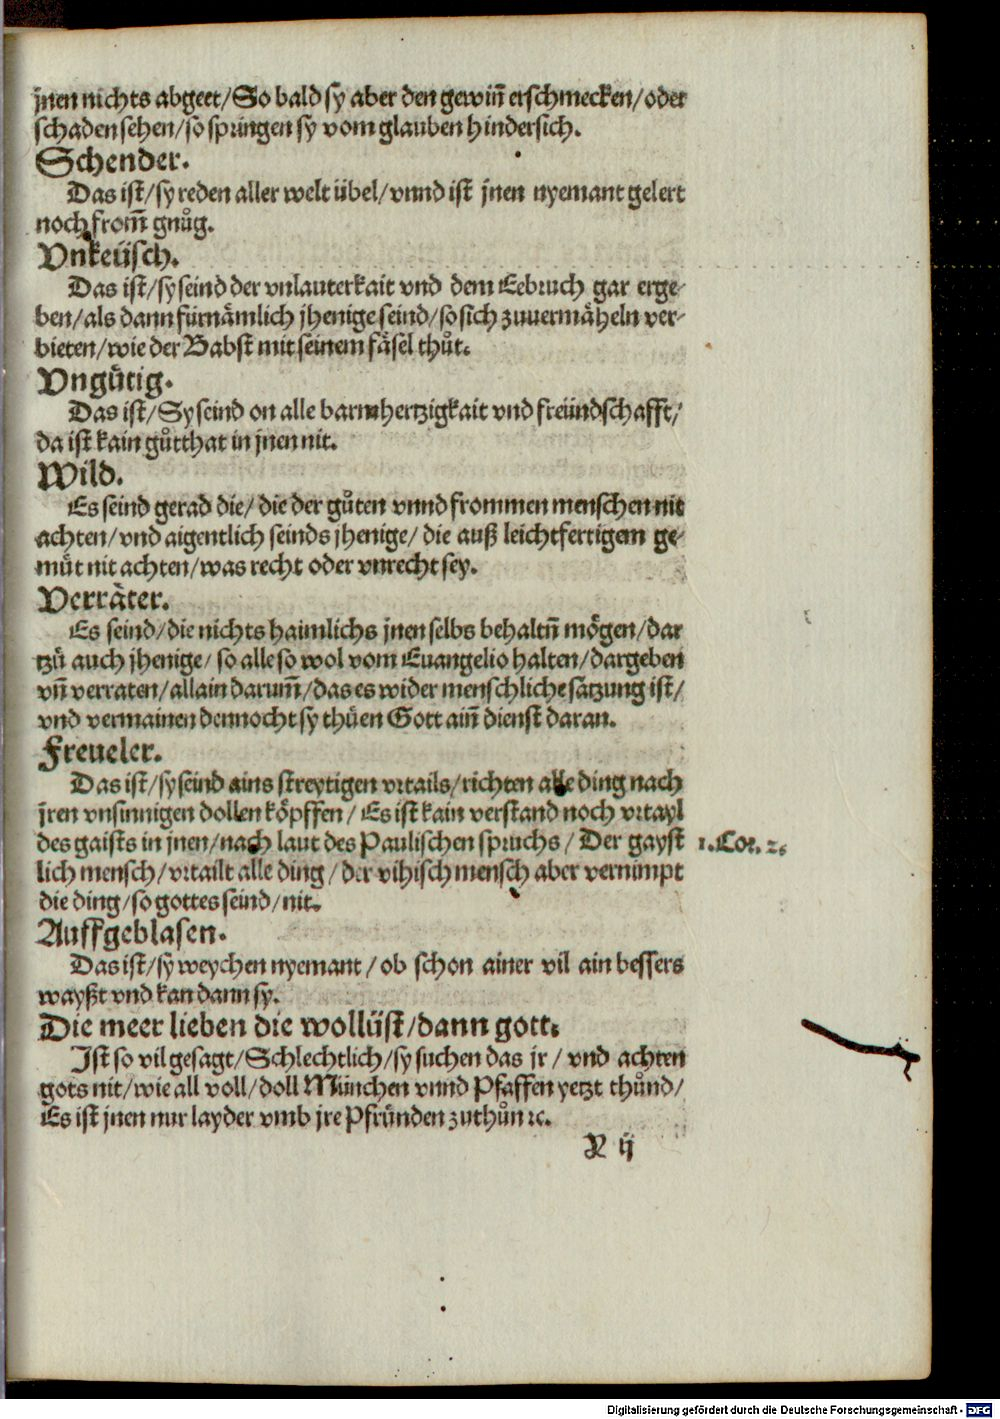 jnen nichts abgeet/So bald sy aber den gewiñ erschmecken/oder
schaden sehen/so springen sy vom glauben hindersich.
Schender.
Das ist/sy reden aller welt übel/vnnd ist jnen nyemant gelert
noch from̃ gnůg.
Vnkeüsch.
Das ist/sy seind der vnlauterkait vnd dem Eebruch gar erge-
ben/als dann fürnämlich jhenige seind/so sich zuuermäheln ver-
bieten/wie der Babst mit seinem fäsel thůt.
Vngütig.
Das ist/Sy seind on alle barmhertzigkait vnd freündschafft/
da ist kain gůtthat in jnen nit.
Wild.
Es seind gerad die/die der gůten vnnd frommen menschen nit
achten/vnd aigentlich seinds jhenige/die auß leichtfertigem ge-
müt nit achten/was recht oder vnrecht sey.
Verräter.
Es seind/die nichts haimlichs jnen selbs behaltñ mögen/dar
tzů auch jhenige/so alle so wol vom Euangelio halten/dargeben
vñ verraten/allain darum̃/das es wider menschliche satzung ist/
vnd vermainen dennocht sy thüen Gott aiñ dienst daran.
Freueler.
Das ist/sy seind ains streytigen vrtails/richten alle ding nach
jren vnsinnigen dollen köpffen/Es ist kain verstand noch vrtayl
des gaists in jnen/nach laut des Paulischen spruchs/Der gayst
lich mensch/vrtailt alle ding/der vihisch mensch aber vernimpt
die ding/so gottes seind/nit.
1.Cor.2.
Auffgeblasen.
Das ist/sy weychen nyemant/ob schon ainer vil ain bessers
wayßt vnd kan dann sy.
Die meer lieben die wollüst/dann gott.
Ist so vil gesagt/Schlechtlich/sy suchen das jr/vnd achten
gots nit/wie all voll/doll München vnnd Pfaffen yetzt thůnd/
Es ist jnen nur layder vmb jre Pfründen zuthůn ꝛc.
V ij
Digitalisierung gefördert durch die Deutsche Forschungsgemeinschaft - DFG